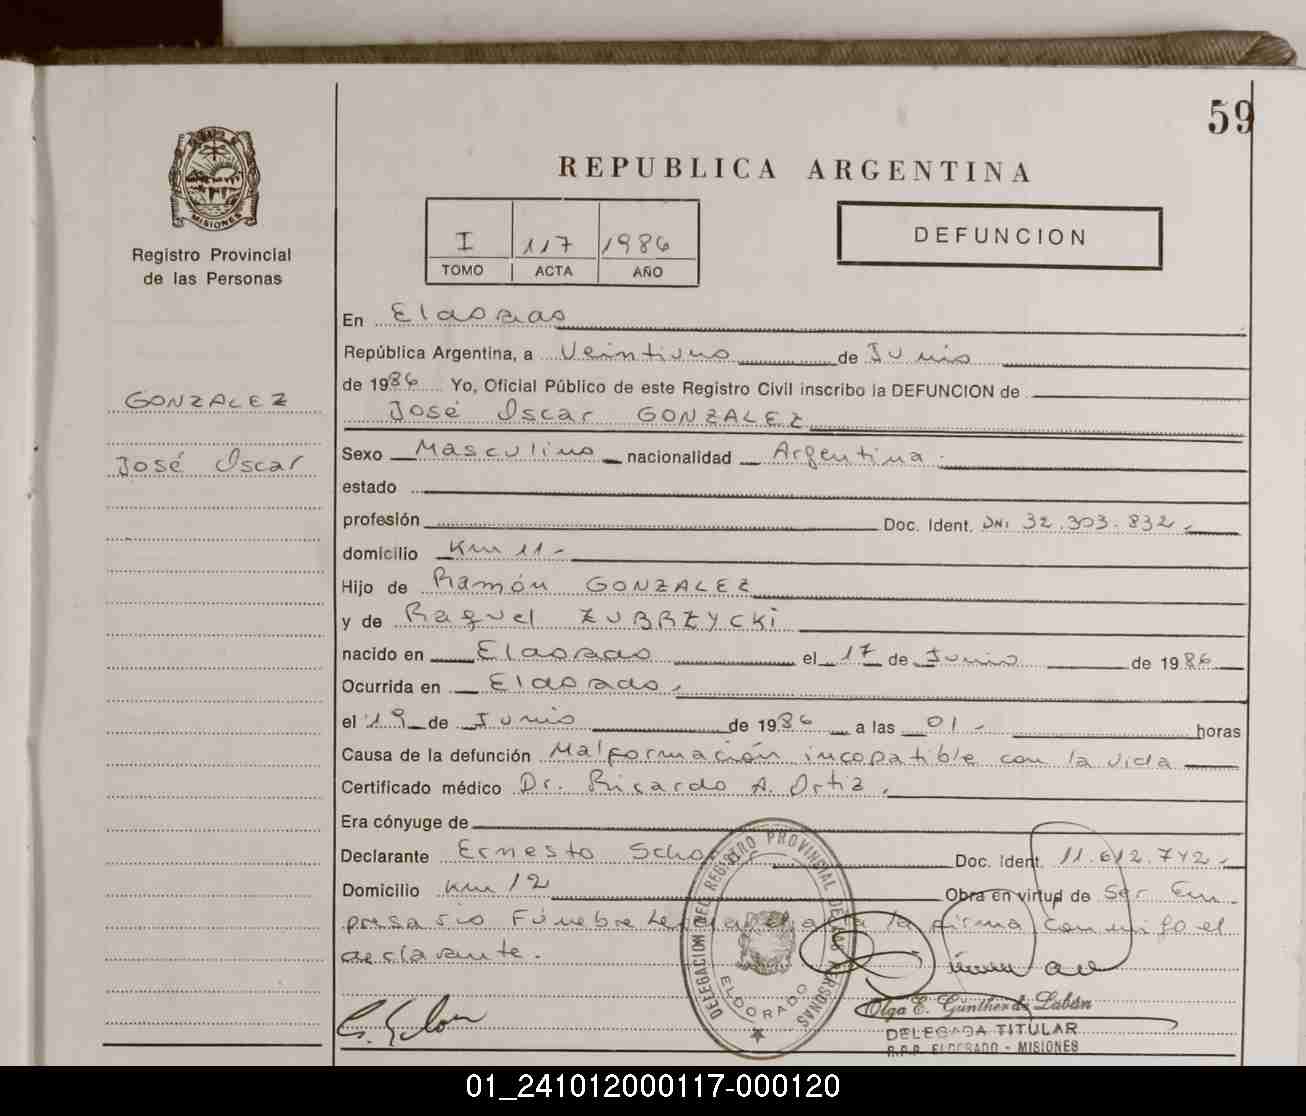 59
MISIONES
Registro Provincial
de las Personas
REPUBLICA ARGENTINA
I 117 1986
TOMO ACTA AÑO
DEFUNCION
En Eldorado
República Argentina, a Veintiuno de Junio
de 1986 Yo, Oficial Público de este Registro Civil inscribo la DEFUNCION de
GONZALEZ
José Oscar GONZALEZ
José Oscar
Sexo Masculino nacionalidad Argentina.
estado
profesión Doc. Ident. DNI 32.303.832.
domicilio Km 11-
Hijo de Ramón GONZALEZ
y de Raquel ZUBRZYCKI
nacido en Eldorado el 17 de Junio de 1986
Ocurrida en Eldorado.
el 19 de Junio de 1986 a las 01- horas
Causa de la defunción Malformación incopatible con la vida
Certificado médico Dr. Ricardo A. Ortiz.
Era cónyuge de
Declarante Ernesto Doc. Ident. 11.612.742.
Domicilio Km 12 Obra en virtud de Ser Em
presario Fúnebre la firma conmigo el
declarante.
DELEGACION DEL REGISTRO PROVINCIAL DE LAS PERSONAS
ELDORADO
Olga E. Günther de Labán
DELEGADA TITULAR
R.P.P. ELDORADO - MISIONES
01_241012000117-000120